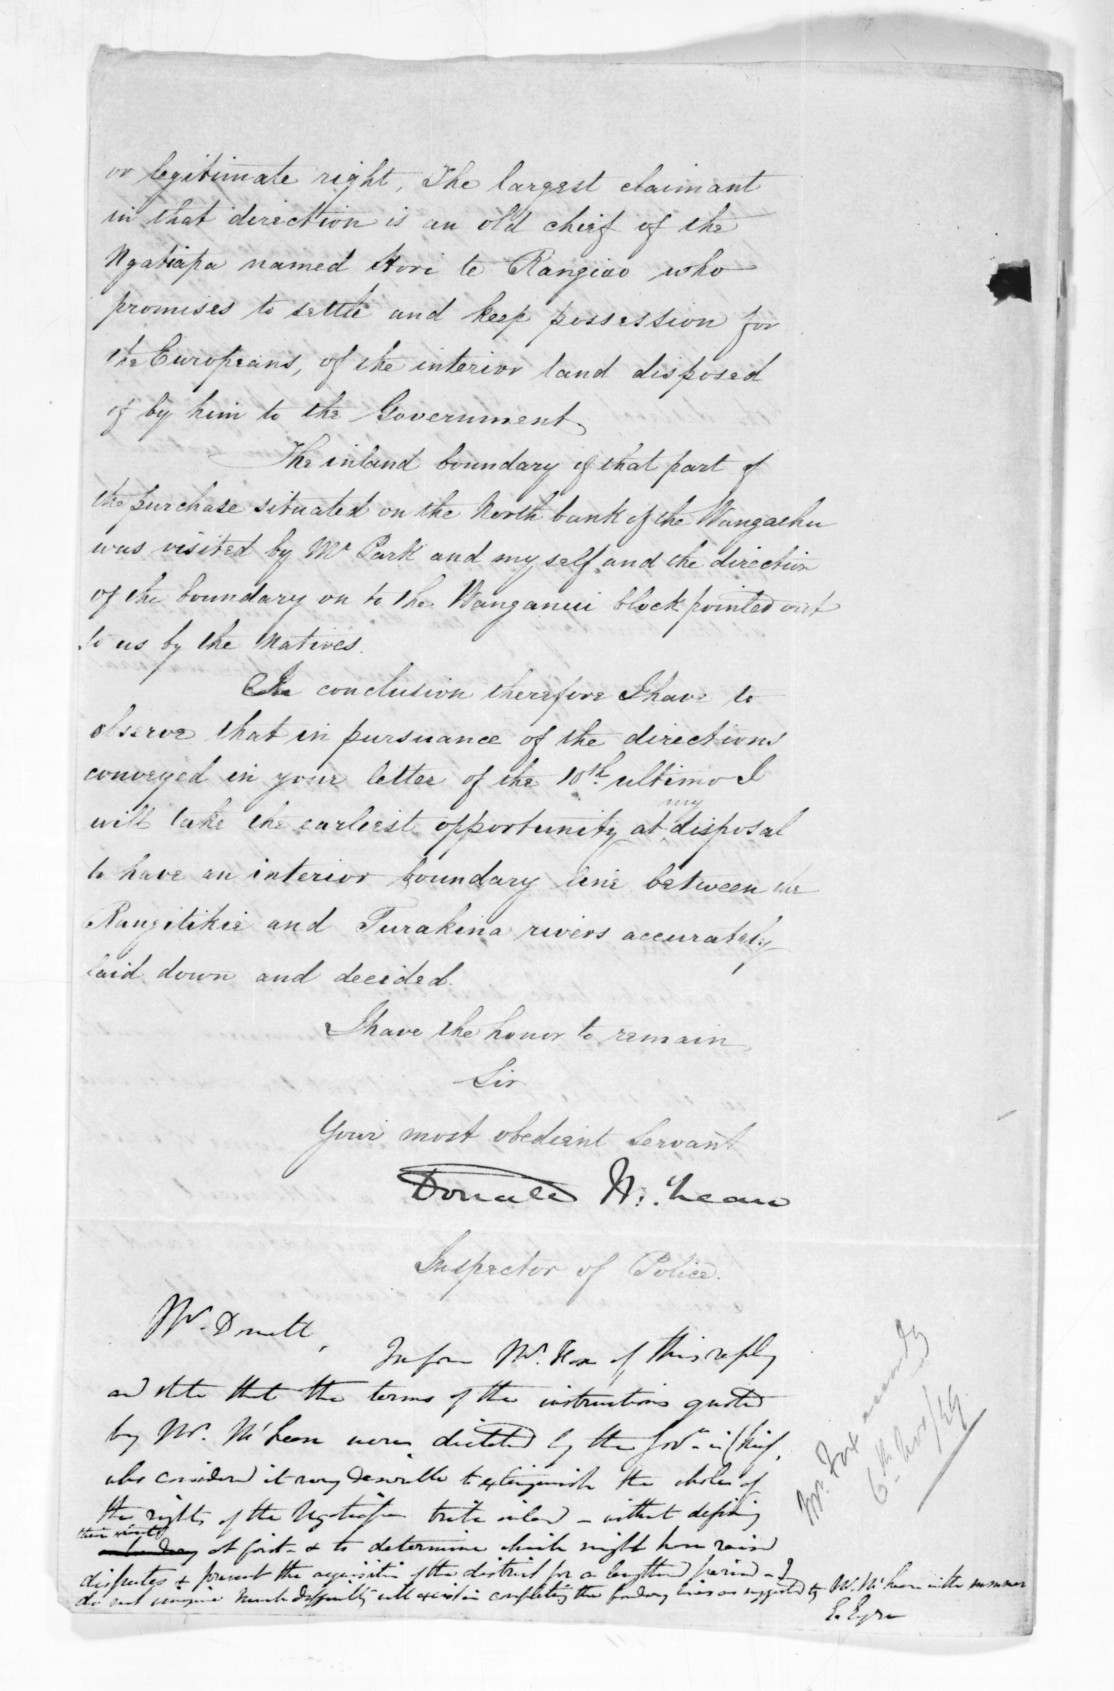 or legitimate right, The largest claimant
in that direction is an old chief of the
Ngatiapa named Hori te Rangiao who
promises to settle and keep possession for
the Europeans, of the interior land disposed
of by him to the Government,
The inland boundary of that part of
the purchase situated on the North bank of the Wangaehu
was visited by Mr Park and myself and the direction
of the boundary on to the Wanganui block pointed out
to us by the Natives.
In conclusion therefore I have to
observe that in pursuance of the directions
conveyed in your letter of the 10th ultimo I
will take the earliest opportunity at my disposal
to have an interior boundary line between the
Rangitikie and Turakina rivers accurately
laid down and decided.
I have the honor to remain
Sir
Your most obedient Servant
Donald McLean
Inspector of Police.
Mr.
Inform Mr. Fox of this reply
and state that the terms of the instructions quoted
by Mr. McLean were dictated by the Govr in Chief,
who considered it very desirable to extinguish the whole of
the rights of the Ngatiapa tribe inland - without defining
their extent at first & to determine which might have raised
disputes & prevent the acquisition of the district for a lengthened period - I
do not imagine much difficulty will exist in completing the boundary lines as suggested by Mr. McLean in the summer
E. Eyre
Mr. Fox accordly
6th Nov/49.